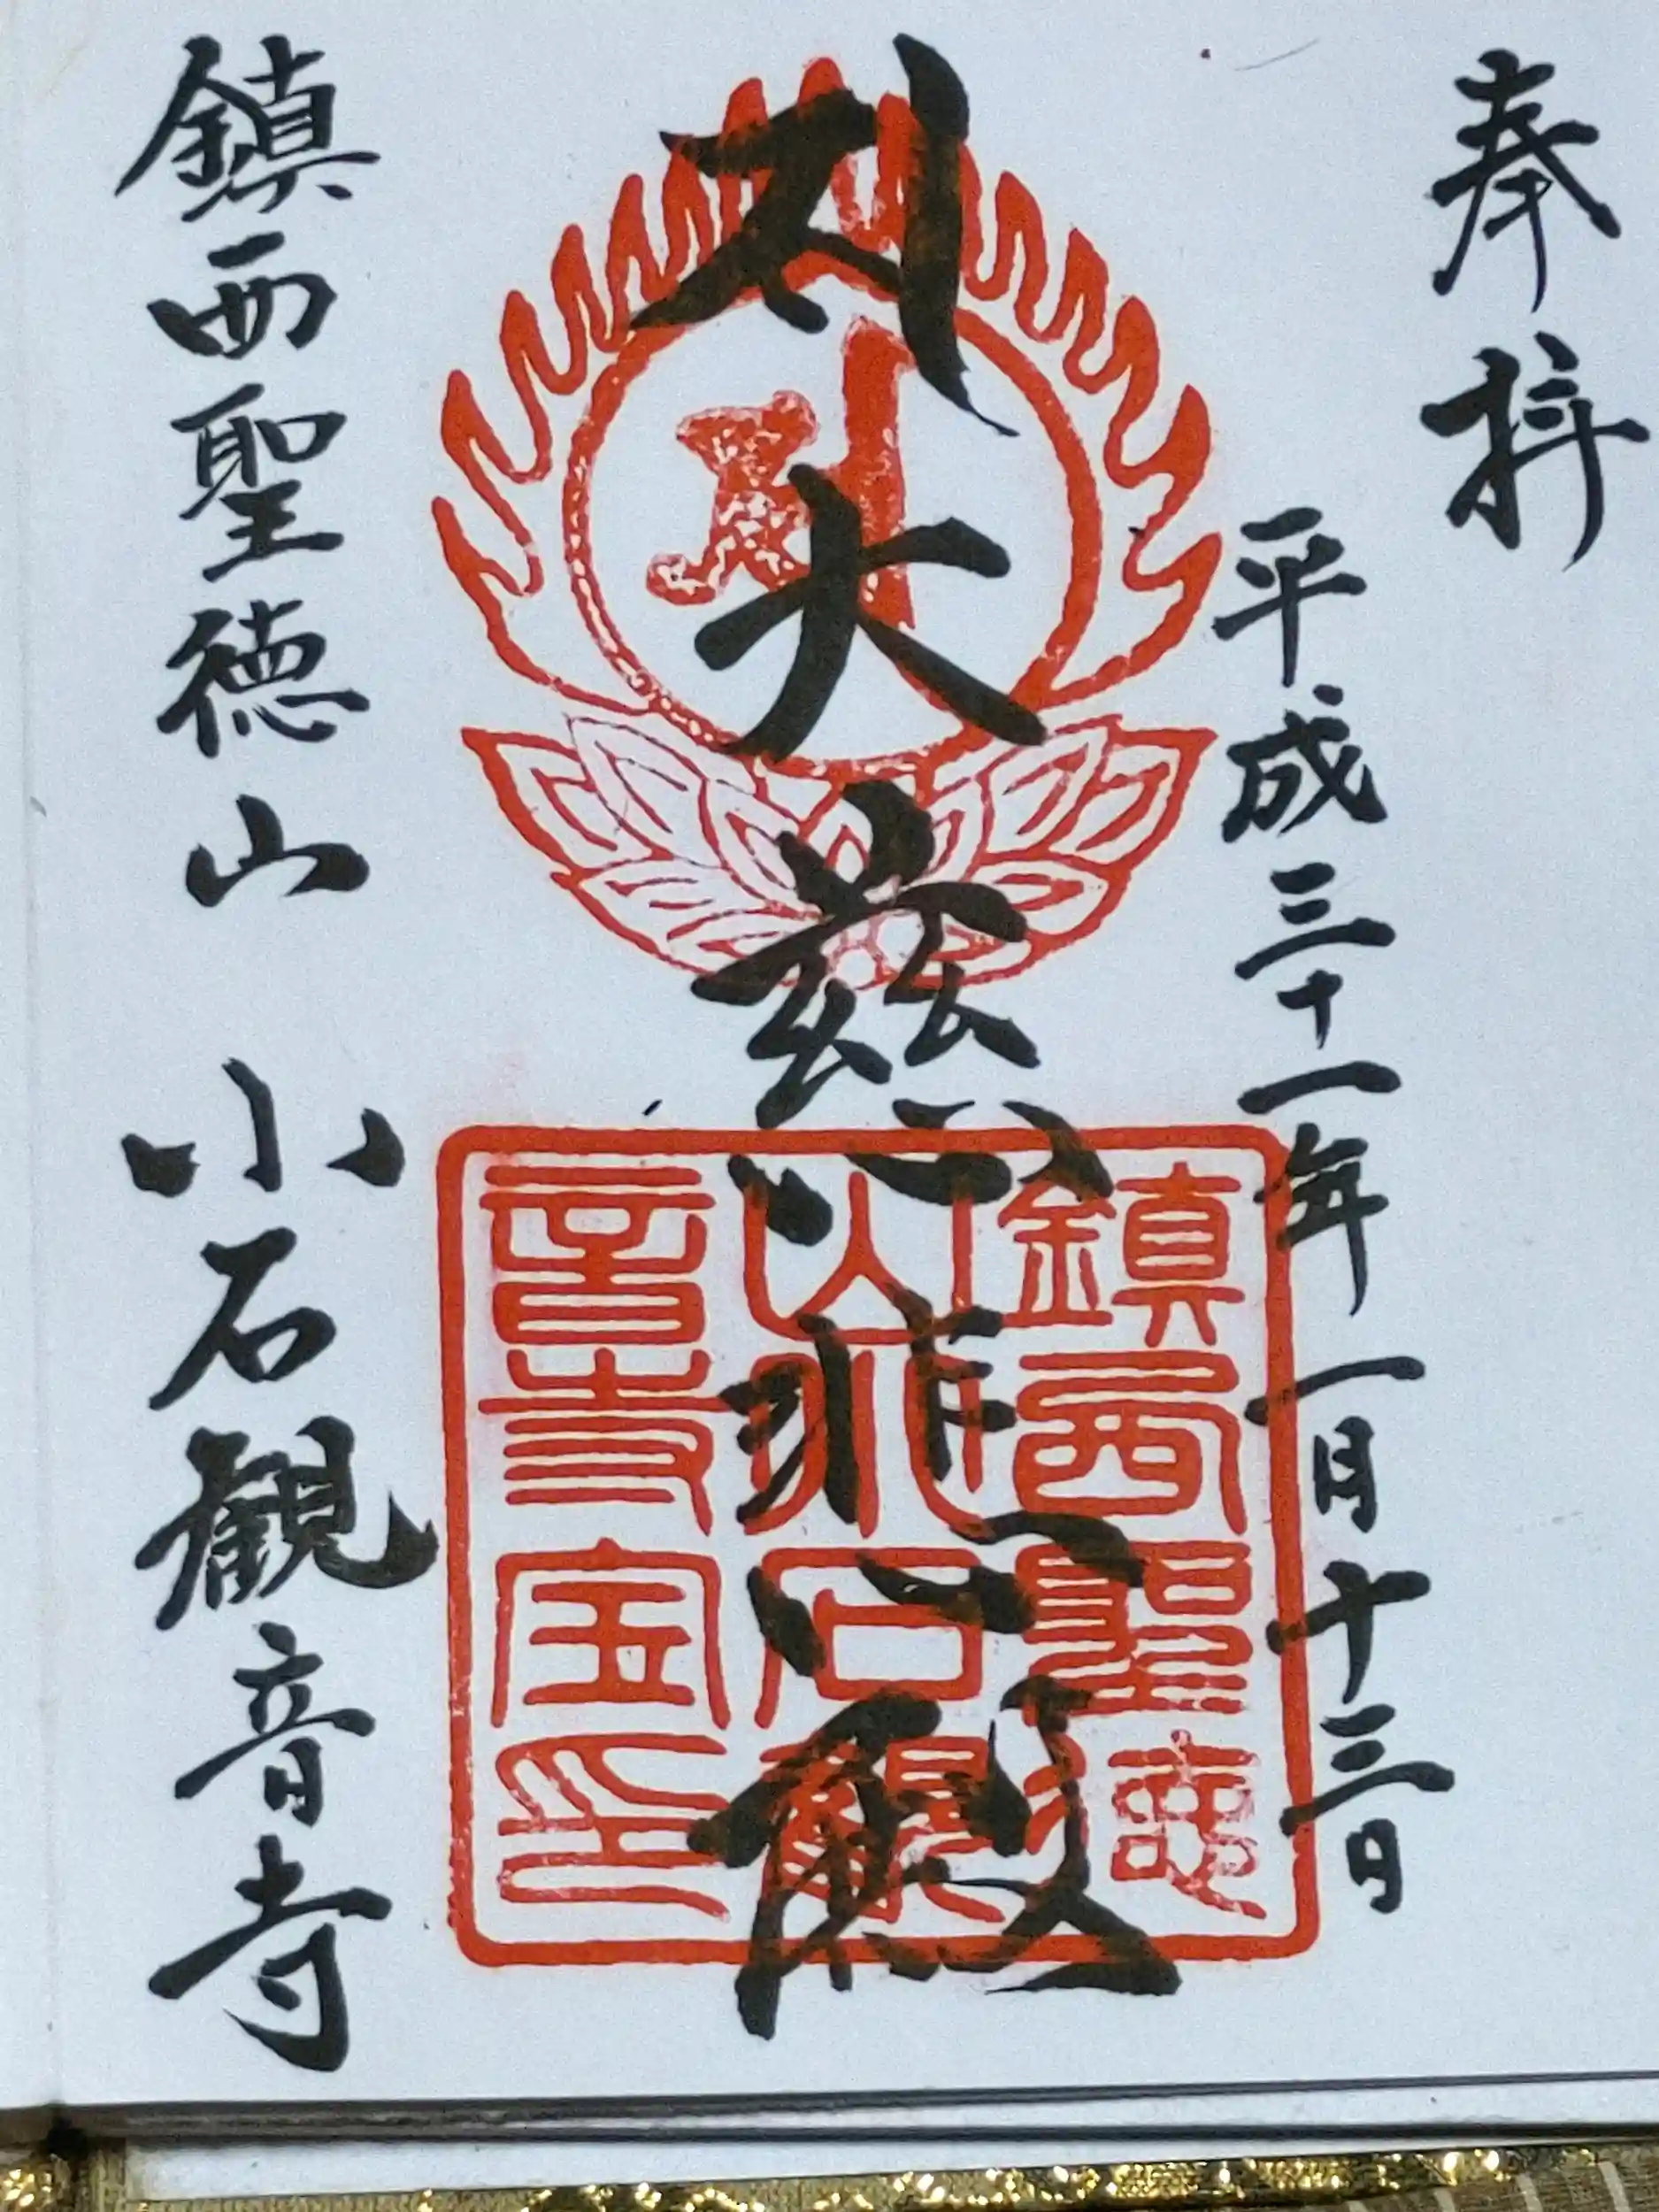 奉拝
平成三十一年一月十三日
大慈心悲心殿
鎮西聖徳山　小石観音寺
鎮西聖徳
山小石観
音寺宝印